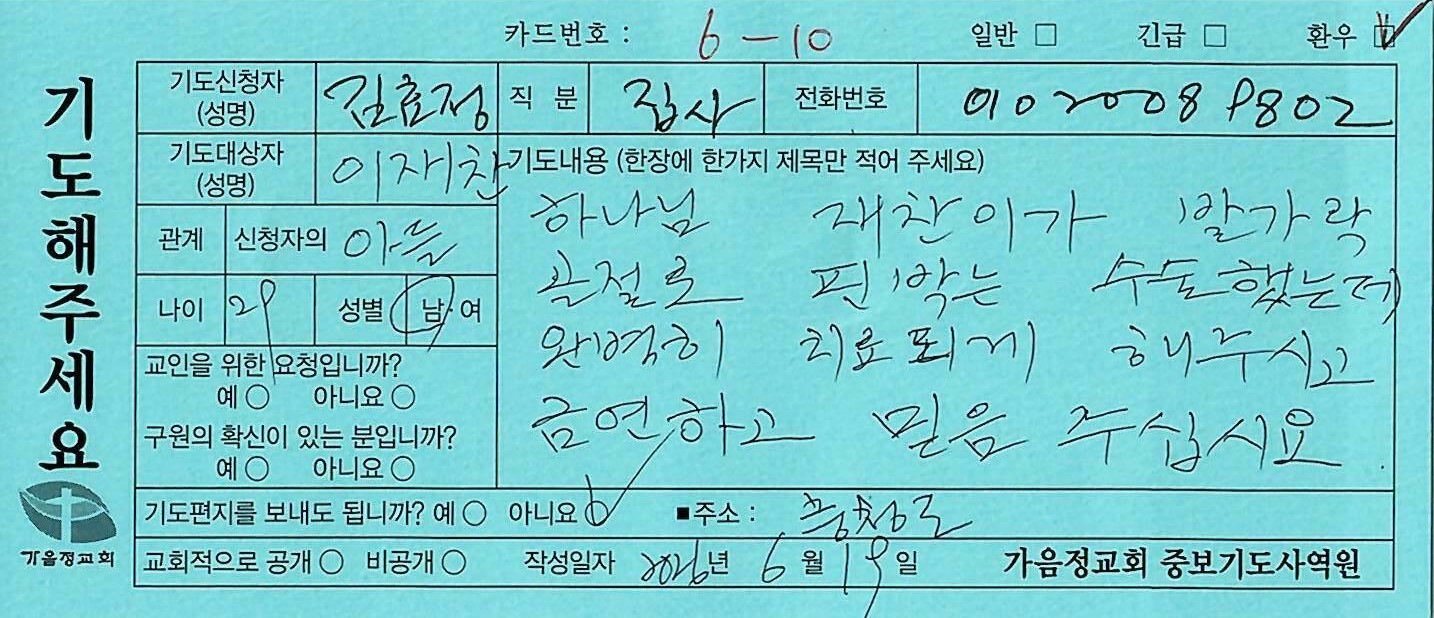 카드번호 : 6-10 일반 □ 긴급 □ 환우 ☑
기도해주세요
기도신청자 (성명) 김효정 직 분 집사 전화번호 010 2008 9802
기도대상자 (성명) 이재찬 기도내용 (한장에 한가지 제목만 적어 주세요)
관계 신청자의 아들
나이 29 성별 남·여
교인을 위한 요청입니까?
예 ○ 아니요 ○
구원의 확신이 있는 분입니까?
예 ○ 아니요 ○
하나님 재찬이가 발가락
골절로 핀박는 수술했는데
완벽히 치료되게 해주시고
금연하고 믿음 주십시요.
기도편지를 보내도 됩니까? 예 ○ 아니요 ○ ■주소 :
교회적으로 공개 ○ 비공개 ○ 작성일자 2026년 6월 19일 가음정교회 중보기도사역원
가음정교회